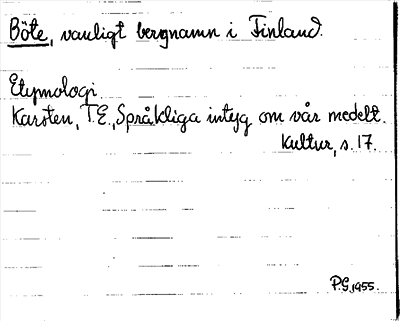 Böte, vanligt bergnamn i Finland.
Etymologi.
Karsten, T.E., Språkliga intyg om vår medelt.
kultur, s. 17.
P.G. 1955.